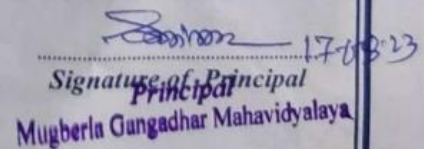 17-08-23
Signature of Principal
Principal
Mugberla Gangadhar Mahavidyalaya